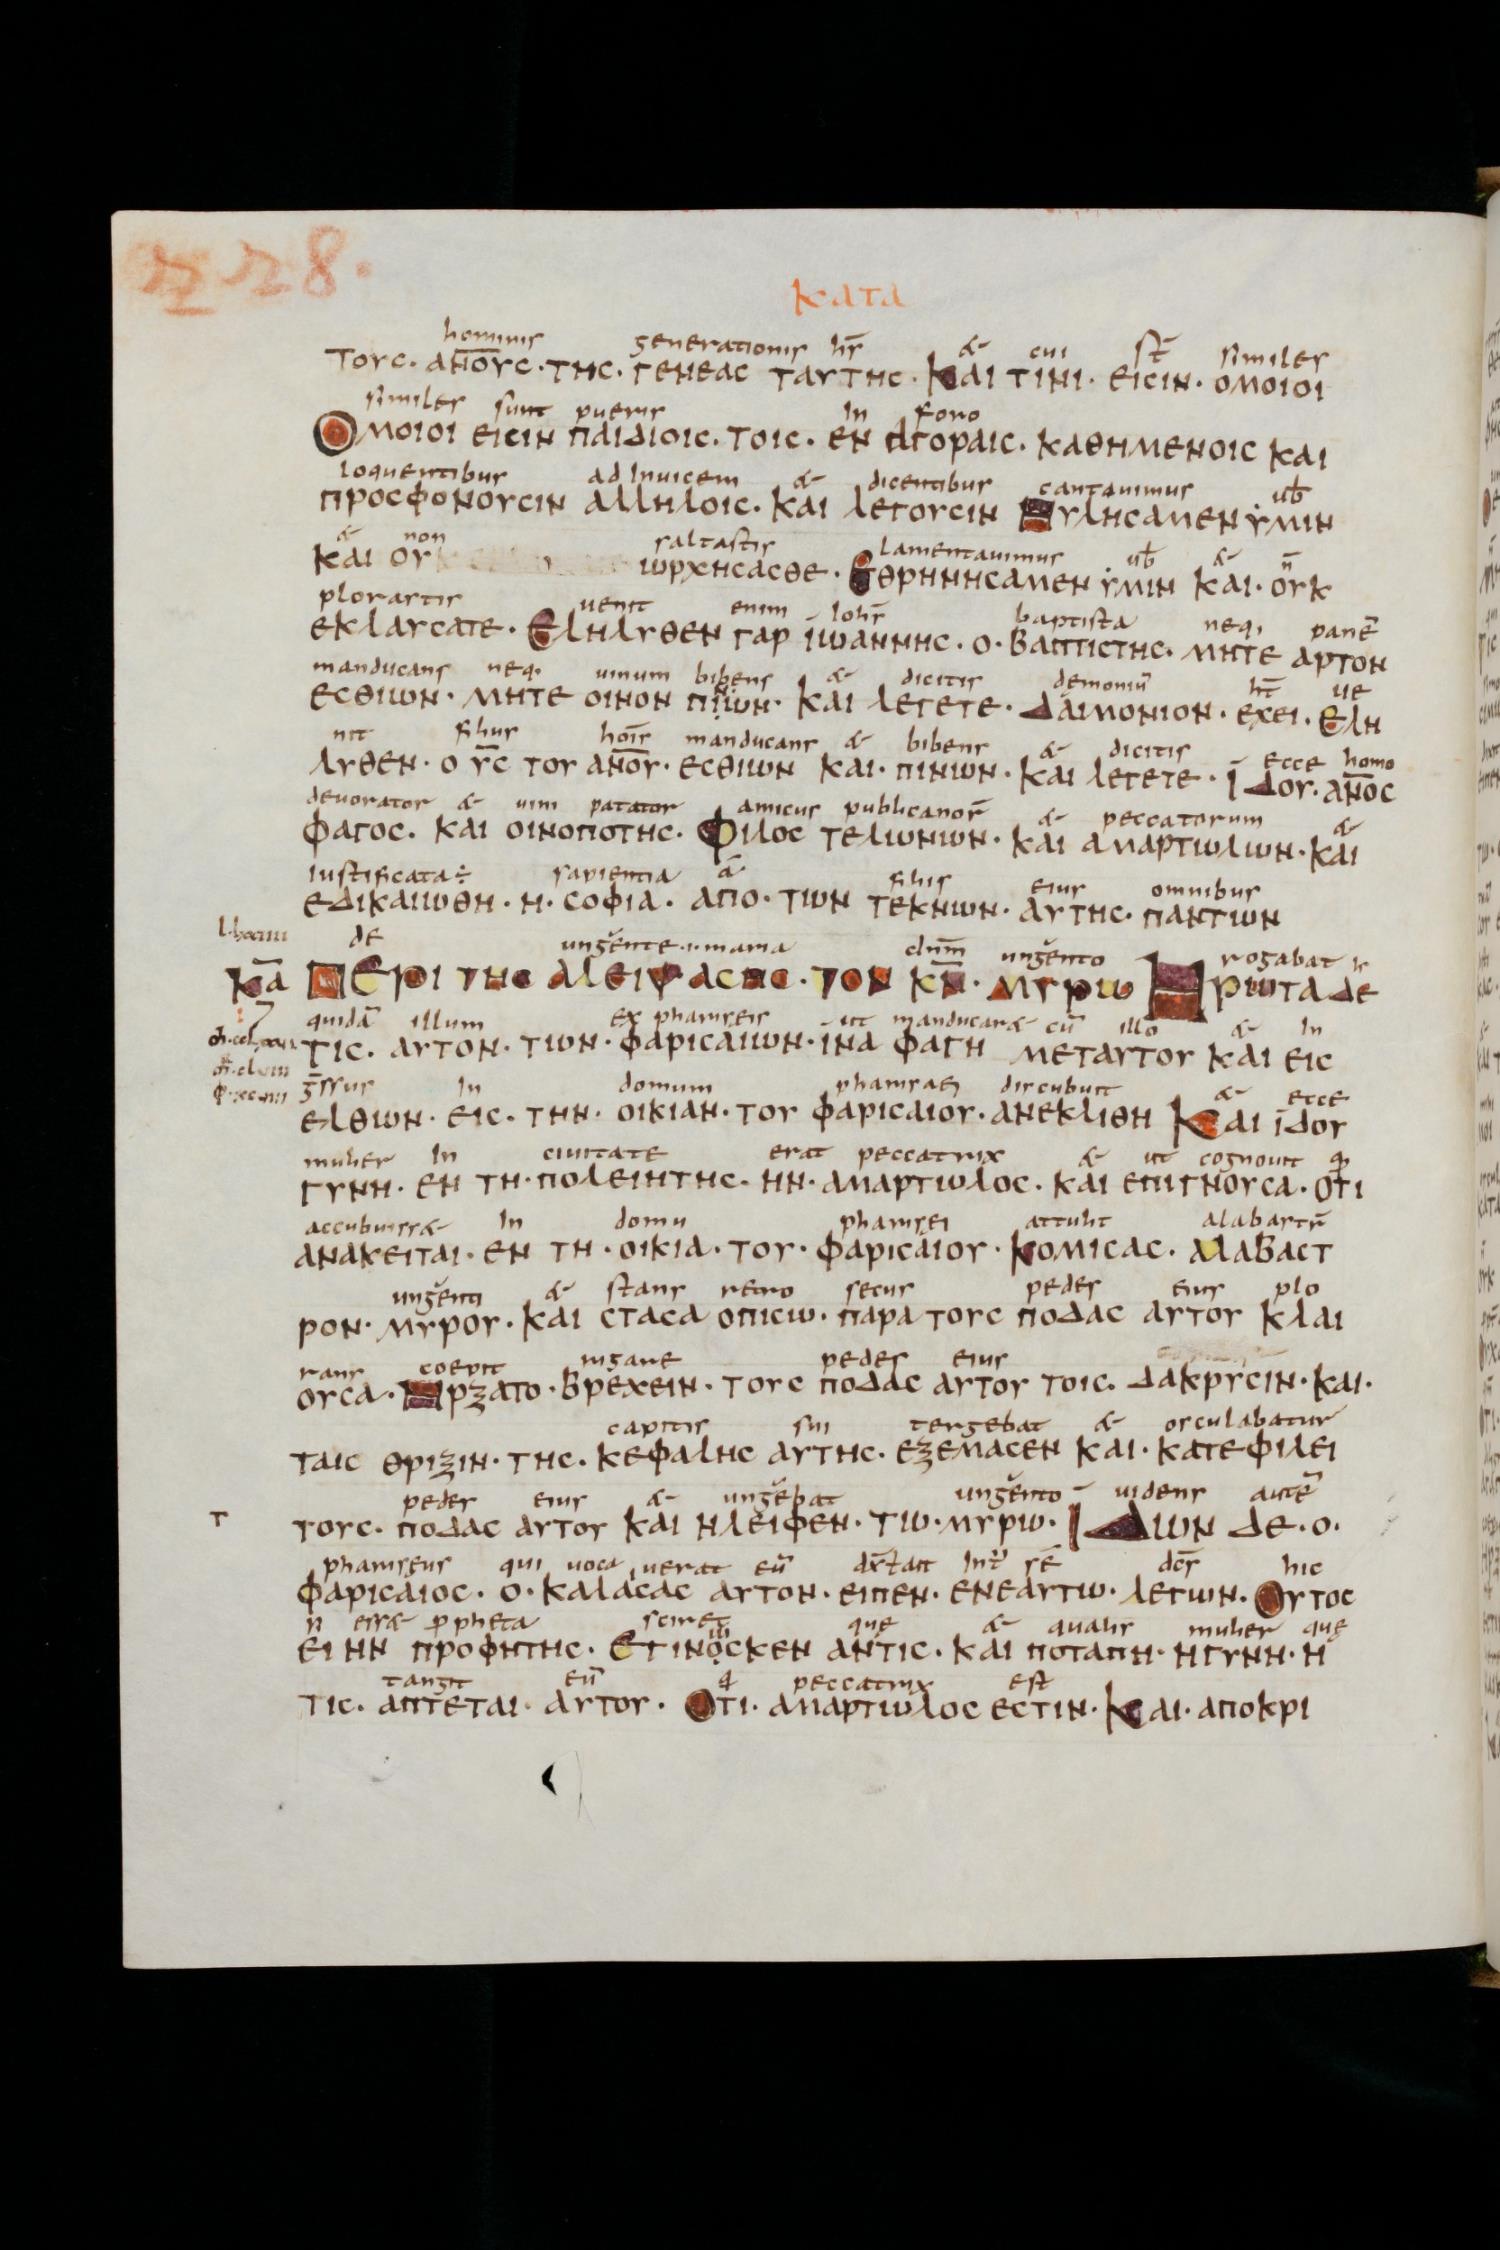 228.
κατα
hominis generationis hꝭ & cui sт̄ similes
τοyc. αν̅ο̅yc. τηc. γενεαc ταyτηc. Και τινι. ειcιν. ομοιοι
similes sunt pueris in foro
Ομοιοι ειcιν παιδιοιc. τοιc. εν αγοραιc. καθημενοιc και
loquentibus ad invicem & dicentibus cantavimus ub̄
προcφονοycιν αλληλοιc. και λεγοycιν Ηyληcαμεν yμιν
& non saltastis lamentavimus ub̄ & n̄
και οy ωρχηcαcθε. Εθρηνηcαμεν yμιν και. οyκ
plorastis venit enim ioh̄s baptista neq; panē
εκλαycατε. Εληλyθεν γαρ ϊωαννηc. ο. βαπτιcτηc. μητε αρτον
manducans neq. vinum bibens & dicitis demoniū h̄t ve
εcθιων. μητε οινον πινων. και λεγετε. Δαιμονιον. εχει. Ελη
nit filius hoīs manducans & bibens & dicitis ecce homo
λyθεν. ο y̅c̅ τοy αν̅ο̅y. εcθιων και. πινων. και λεγετε. ϊδοy. αν̅ο̅c
devorator & vini patator amicus publicanor̄ & peccatorum &
φαγοc. και οινοποτηc. φιλοc τελωνων. και αμαρτωλων. και
iustificata÷ sapientia a filiis eius omnibus
εδικαιωθη. η. cοφια. απο. των τεκνων. αyτηc. παντων
de ungente.i.maria dnm̄ ungento rogabat
κ̅α̅ Περι τηc αλειψαcηc. τον κ̅ν̅. μyρω Ηρωτα δε
quidā illum ex phariseis ut manducar& cū illo & in
τιc. αyτον. των. φαριcαιων. ϊνα φαγη μεταyτοy και ειc
g̅ssus in domum pharisaei discubuit & ecce
ελθων. ειc. την. οικιαν. τοy φαριcαιοy. ανεκλιθη Και ϊδοy
mulier in civitate erat peccatrix & ut cognovit q̄
γyνη. εν τη. πολειητηc. ην. αμαρτωλοc. και επιγνοycα. οτι
accubuiss& in domu pharisei attulit alabastr̄
ανακειται. εν τη. οικια. τοy. φαριcαιοy. κομιcαc. αλαβαcτ
ungenti & stans retro secus pedes eius plo
ρον. μyροy. και cταcα οπιcω. παρα τοyc ποδαc αyτοy κλαι
rans coepit rigare pedes eius
οycα. Ηρξατο. βρεχειν. τοyc ποδαc αyτοy τοιc. δακρycιν. και.
capitis sui tergebat & osculabatur
ταιc θριξιν. τηc. κεφαληc αyτηc. εξεμαcεν και. κατεφιλει
pedes eius & ungebat ungento videns autē
τ τοyc. ποδαc αyτοy και ηλειφεν. τω. μyρω. Ιδων δε. ο.
phariseus qui vocaverat eū int̄ sē dc̄s hic
φαριcαιοc. ο. καλαcαc αyτον. ειπεν. ενεαyτω. λεγων. Οyτοc
si ess& ꝓpheta sciret que & qualis mulier quę
ει ην προφητηc. Εγινοcκεν αντιc. και ποταπη. ηγyνη. η
tangit eū q̄ peccatrix est
τιc. απτεται. αyτοy. Οτι. αμαρτωλοc εcτιν. Και. αποκρι